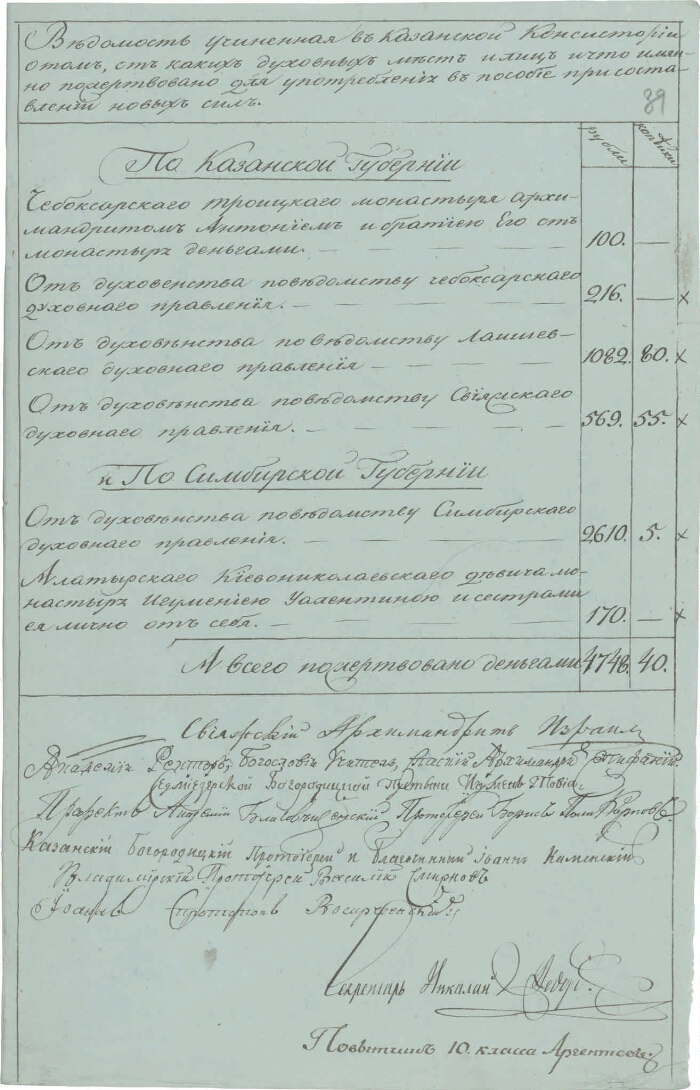 Вѣдомость учиненная въ Казанской Консисторіи
отомъ, отъ какихъ духовныхъ мѣстъ илицъ ичто имян-
но пожертвовано для употребленія въ пособіе присоста-
вленіи новыхъ силъ.
39
рубли копѣйки
По Казанской Губерніи
Чебоксарскаго троицкаго монастыря архи-
мандритомъ Антоніемъ ибратіею Его отъ
монастыря деньгами. 100. —
Отъ духовенства повѣдомству чебоксарскаго
духовнаго правленія. 216. — x
Отъ духовѣнства повѣдомству Лаишев-
скаго духовнаго правленія 1082. 80. x
Отъ духовѣнства повѣдомству Свіяжскаго
духовнаго правленія. 569. 55. x
и По Симбирской Губерніи
Отъ духовѣнства повѣдомству Симбирскаго
духовнаго правленія. 2610. 5. x
Алатырскаго Кіевониколаевскаго дѣвича мо-
настыря Игуменіею Уалентиною исестрами
ея лично отъ себя. 170. — x
А всего пожертвовано деньгами 4748. 40.
Свіяжскій Архимандритъ Израил
Академіи Ректоръ, Богословіи Учитель, Архимандри Епифаній.
Седміезерской Богородицкой пустыни Игуменъ
Префектъ Академіи Благовѣщенскій Протоіерей Борисъ Поликарповъ.
Казанскій Богородицкій Протоіерей и Благочинный Іоаннъ Каменскій
Владимірскій Протоіерей Василій Смирновъ
Іоаннъ Протопопъ Воскресенскій
Секретарь Николай
Повытчикъ 10. класса Аргентовъ.